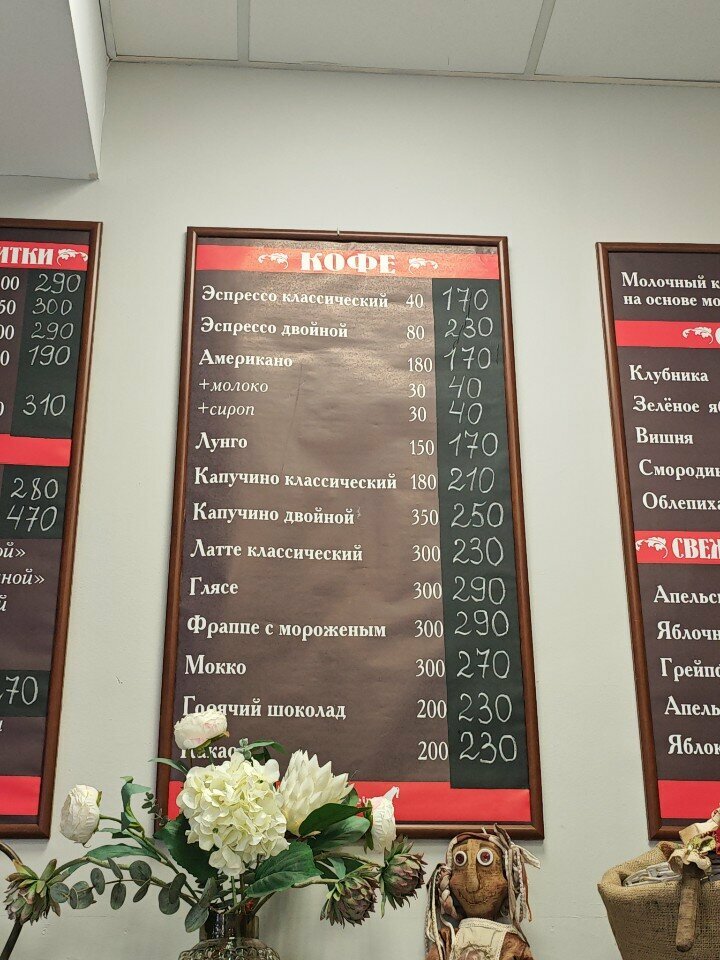 290
300
290
190
310
280
470
КОФЕ
Эспрессо классический 40 170
Эспрессо двойной 80 230
Американо 180 170
+молоко 30 40
+сироп 30 40
Лунго 150 170
Капучино классический 180 210
Капучино двойной 350 250
Латте классический 300 230
Глясе 300 290
Фраппе с мороженым 300 290
Мокко 300 270
Горячий шоколад 200 230
Какао 200 230
Молочный
на основе
Клубника
Зелёное
Вишня